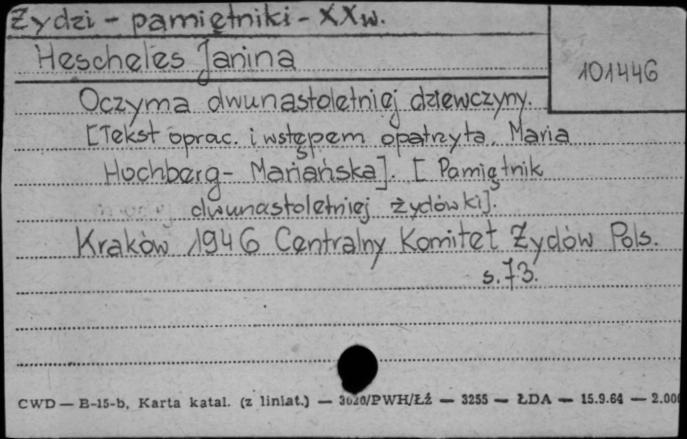 Żydzi - pamiętniki - XX w.
Hescheles Janina
101446
Oczyma dwunastoletniej dziewczyny.
[Tekst oprac. i wstępem opatrzyła Maria
Hochberg - Mariańska]. [Pamiętnik
dwunastoletniej żydówki].
Kraków 1946 Centralny Komitet Żydów Pols.
s. 73.
CWD — B-15-b, Karta katal. (z liniat.) — 3020/PWH/Łź — 3255 — ŁDA — 15.9.64 — 2.000